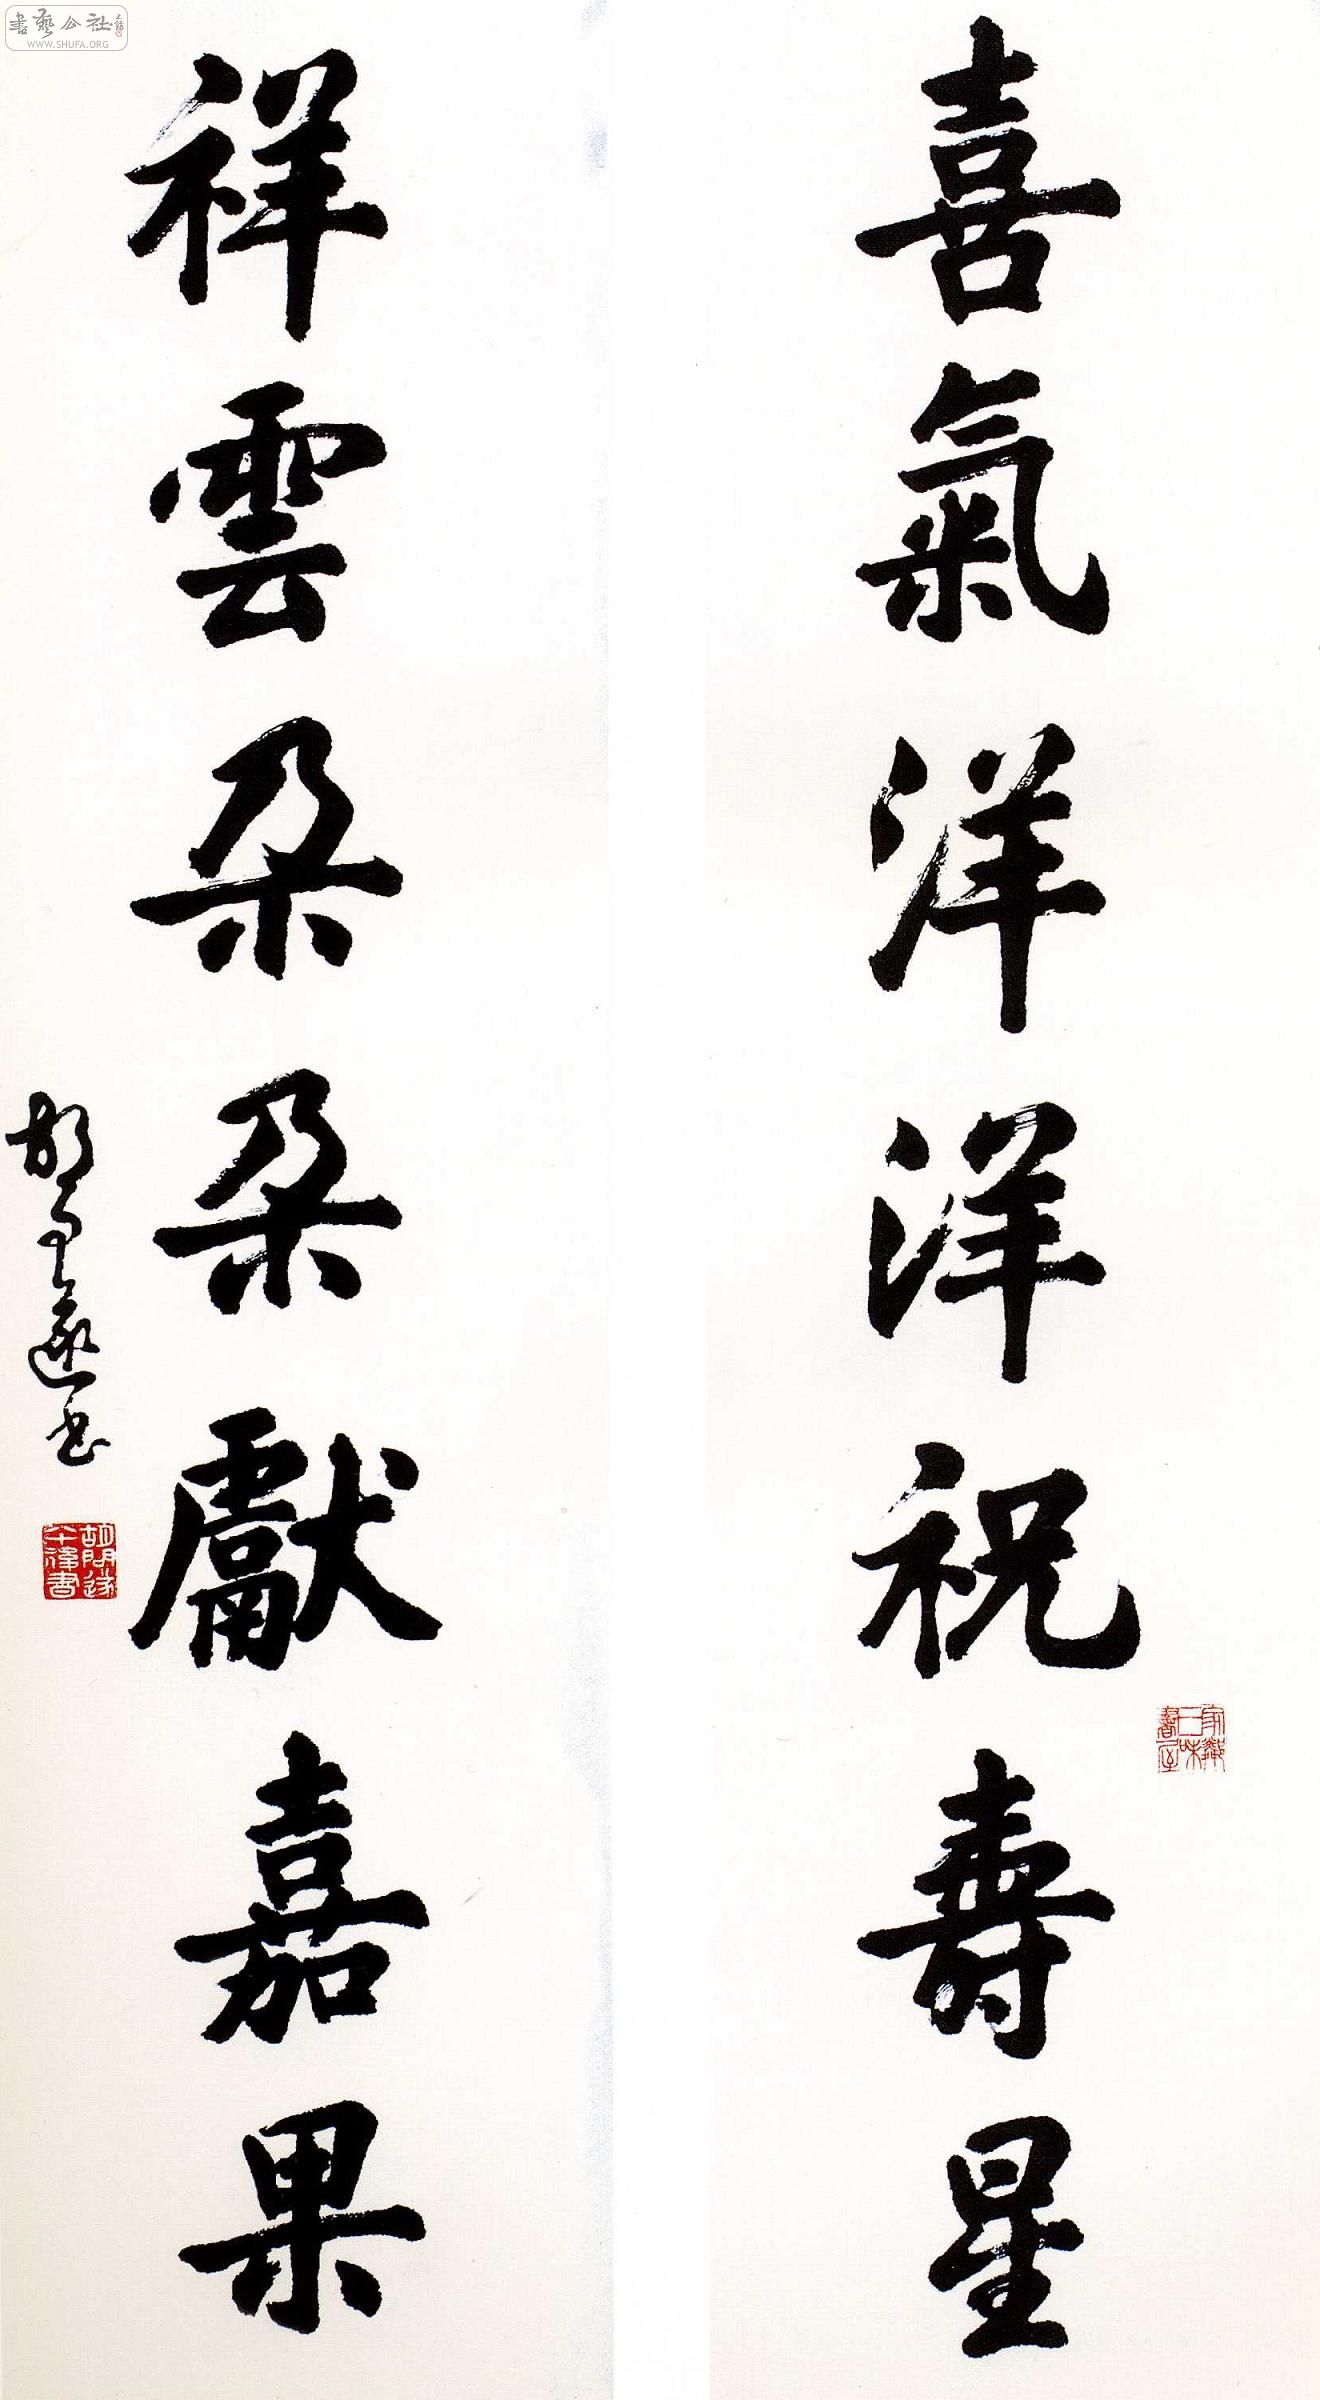 喜氣洋洋祝壽星
祥雲朶朶獻嘉果
胡問遂书
胡問遂
六十後書
書藝公社
WWW.SHUFA.ORG